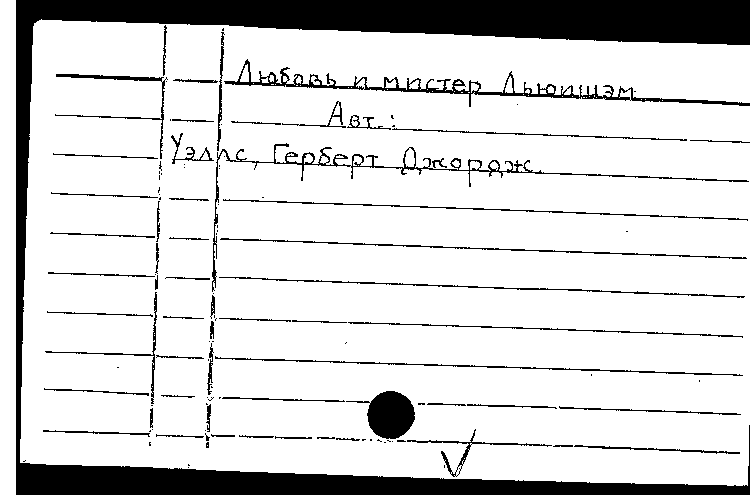 Любовь и мистер Льюишэм
Авт.:
Уэллс, Герберт Джордж.